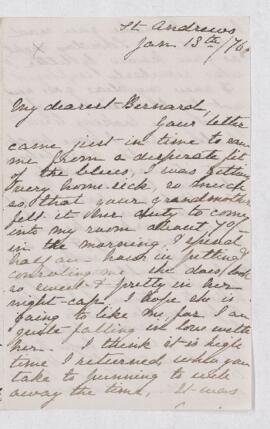 St. Andrews
Jan 13th/76
My dearest Bernard,
Your letter
came just in time to save
me from a desperate fit
of the blues, I was getting
very home-sick, so much
so, that your grandmother
felt it her duty to come
into my room about 7 o'
in the morning & spend
half an hour in petting &
consoling me. She does look
so sweet & pretty in her
night-cap. I hope she is
going to like me, for I am
quite falling in love with
her. I think it is high
time I returned when you
take to punning to while
away the time. It was